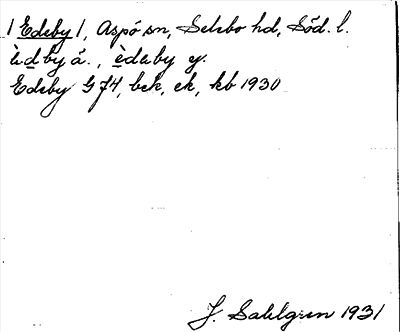 1 Edeby 1, Aspö sn, Selebo hd, Söd. l.
èdby ä., èdeby y.
Edeby G 74, bek, ek, kb 1930
J. Sahlgren 1931